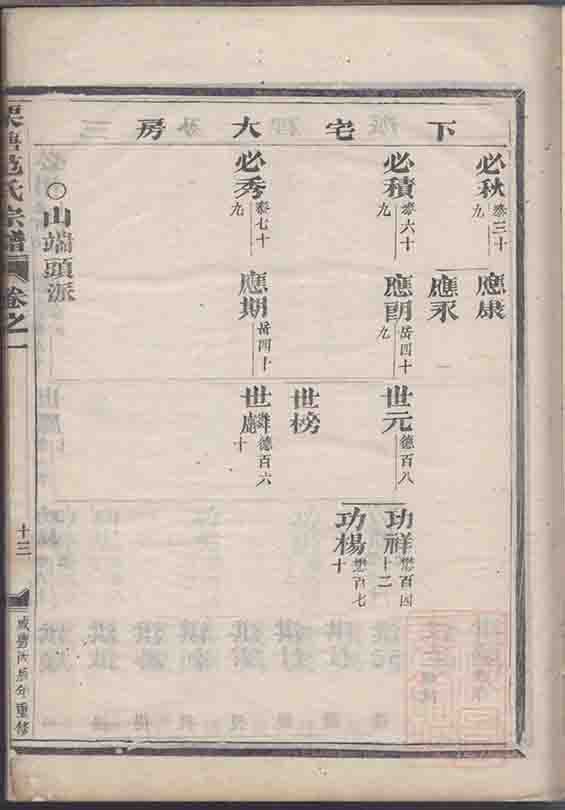 下宅大房
必秋 泰三十九
應康
應永
必積 泰六十九
應朗 岳四十九
世元 德百八
世榜
功祥 懋百四十二
功楊 懋百七十
必秀 泰七十九
應期 岳四十
世麟 德百六十
○山端頭派
氏宗譜
卷之一
十三
咸豐丙辰年重修